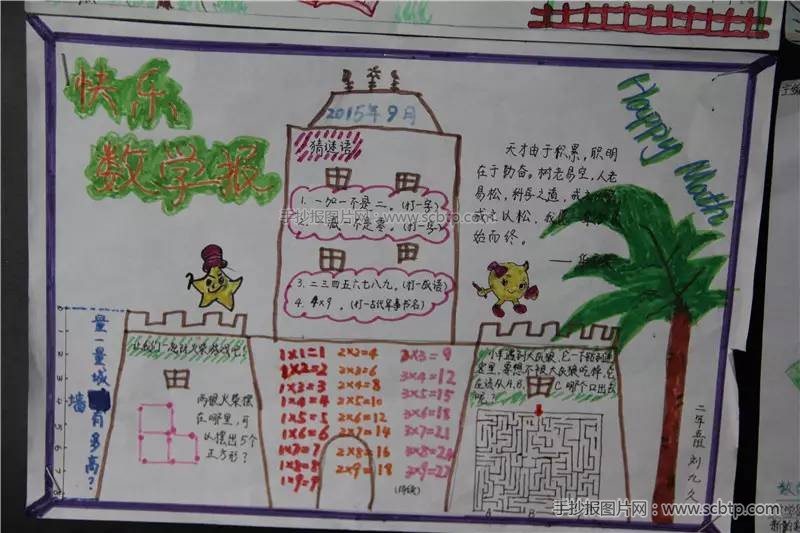 快乐
数学报
2015年9月
猜谜语
1. 一加一不是二。(打一字)
2. 一减一不是零。(打一字)
3. 二三四五六七八九。(打一成语)
4. 4×9。(打一古代军事书名)
天才由于积累，聪明
在于勤奋。树老易空，人老
易松，科学之道，
成之以松，我
始而终。
Happy Math
手抄报图片网：www.scbtp.com
量一量城
墙有多高？
两根火柴摆
在哪里，可
以摆出5个
正方形？
1×1=1 2×2=4 3×3=9
1×2=2 2×3=6 3×4=12
1×3=3 2×4=8 3×5=15
1×4=4 2×5=10 3×6=18
1×5=5 2×6=12 3×7=21
1×6=6 2×7=14 3×8=24
1×7=7 2×8=16 3×9=27
1×8=8 2×9=18
1×9=9
(待续)
小羊遇到大灰狼，它一下躲到迷
宫里，要想不被大灰狼吃掉，它
应该从A、B、C哪个口出去
呢？
A B C
二年五班 刘九久
手抄报图片网：www.scbtp.com